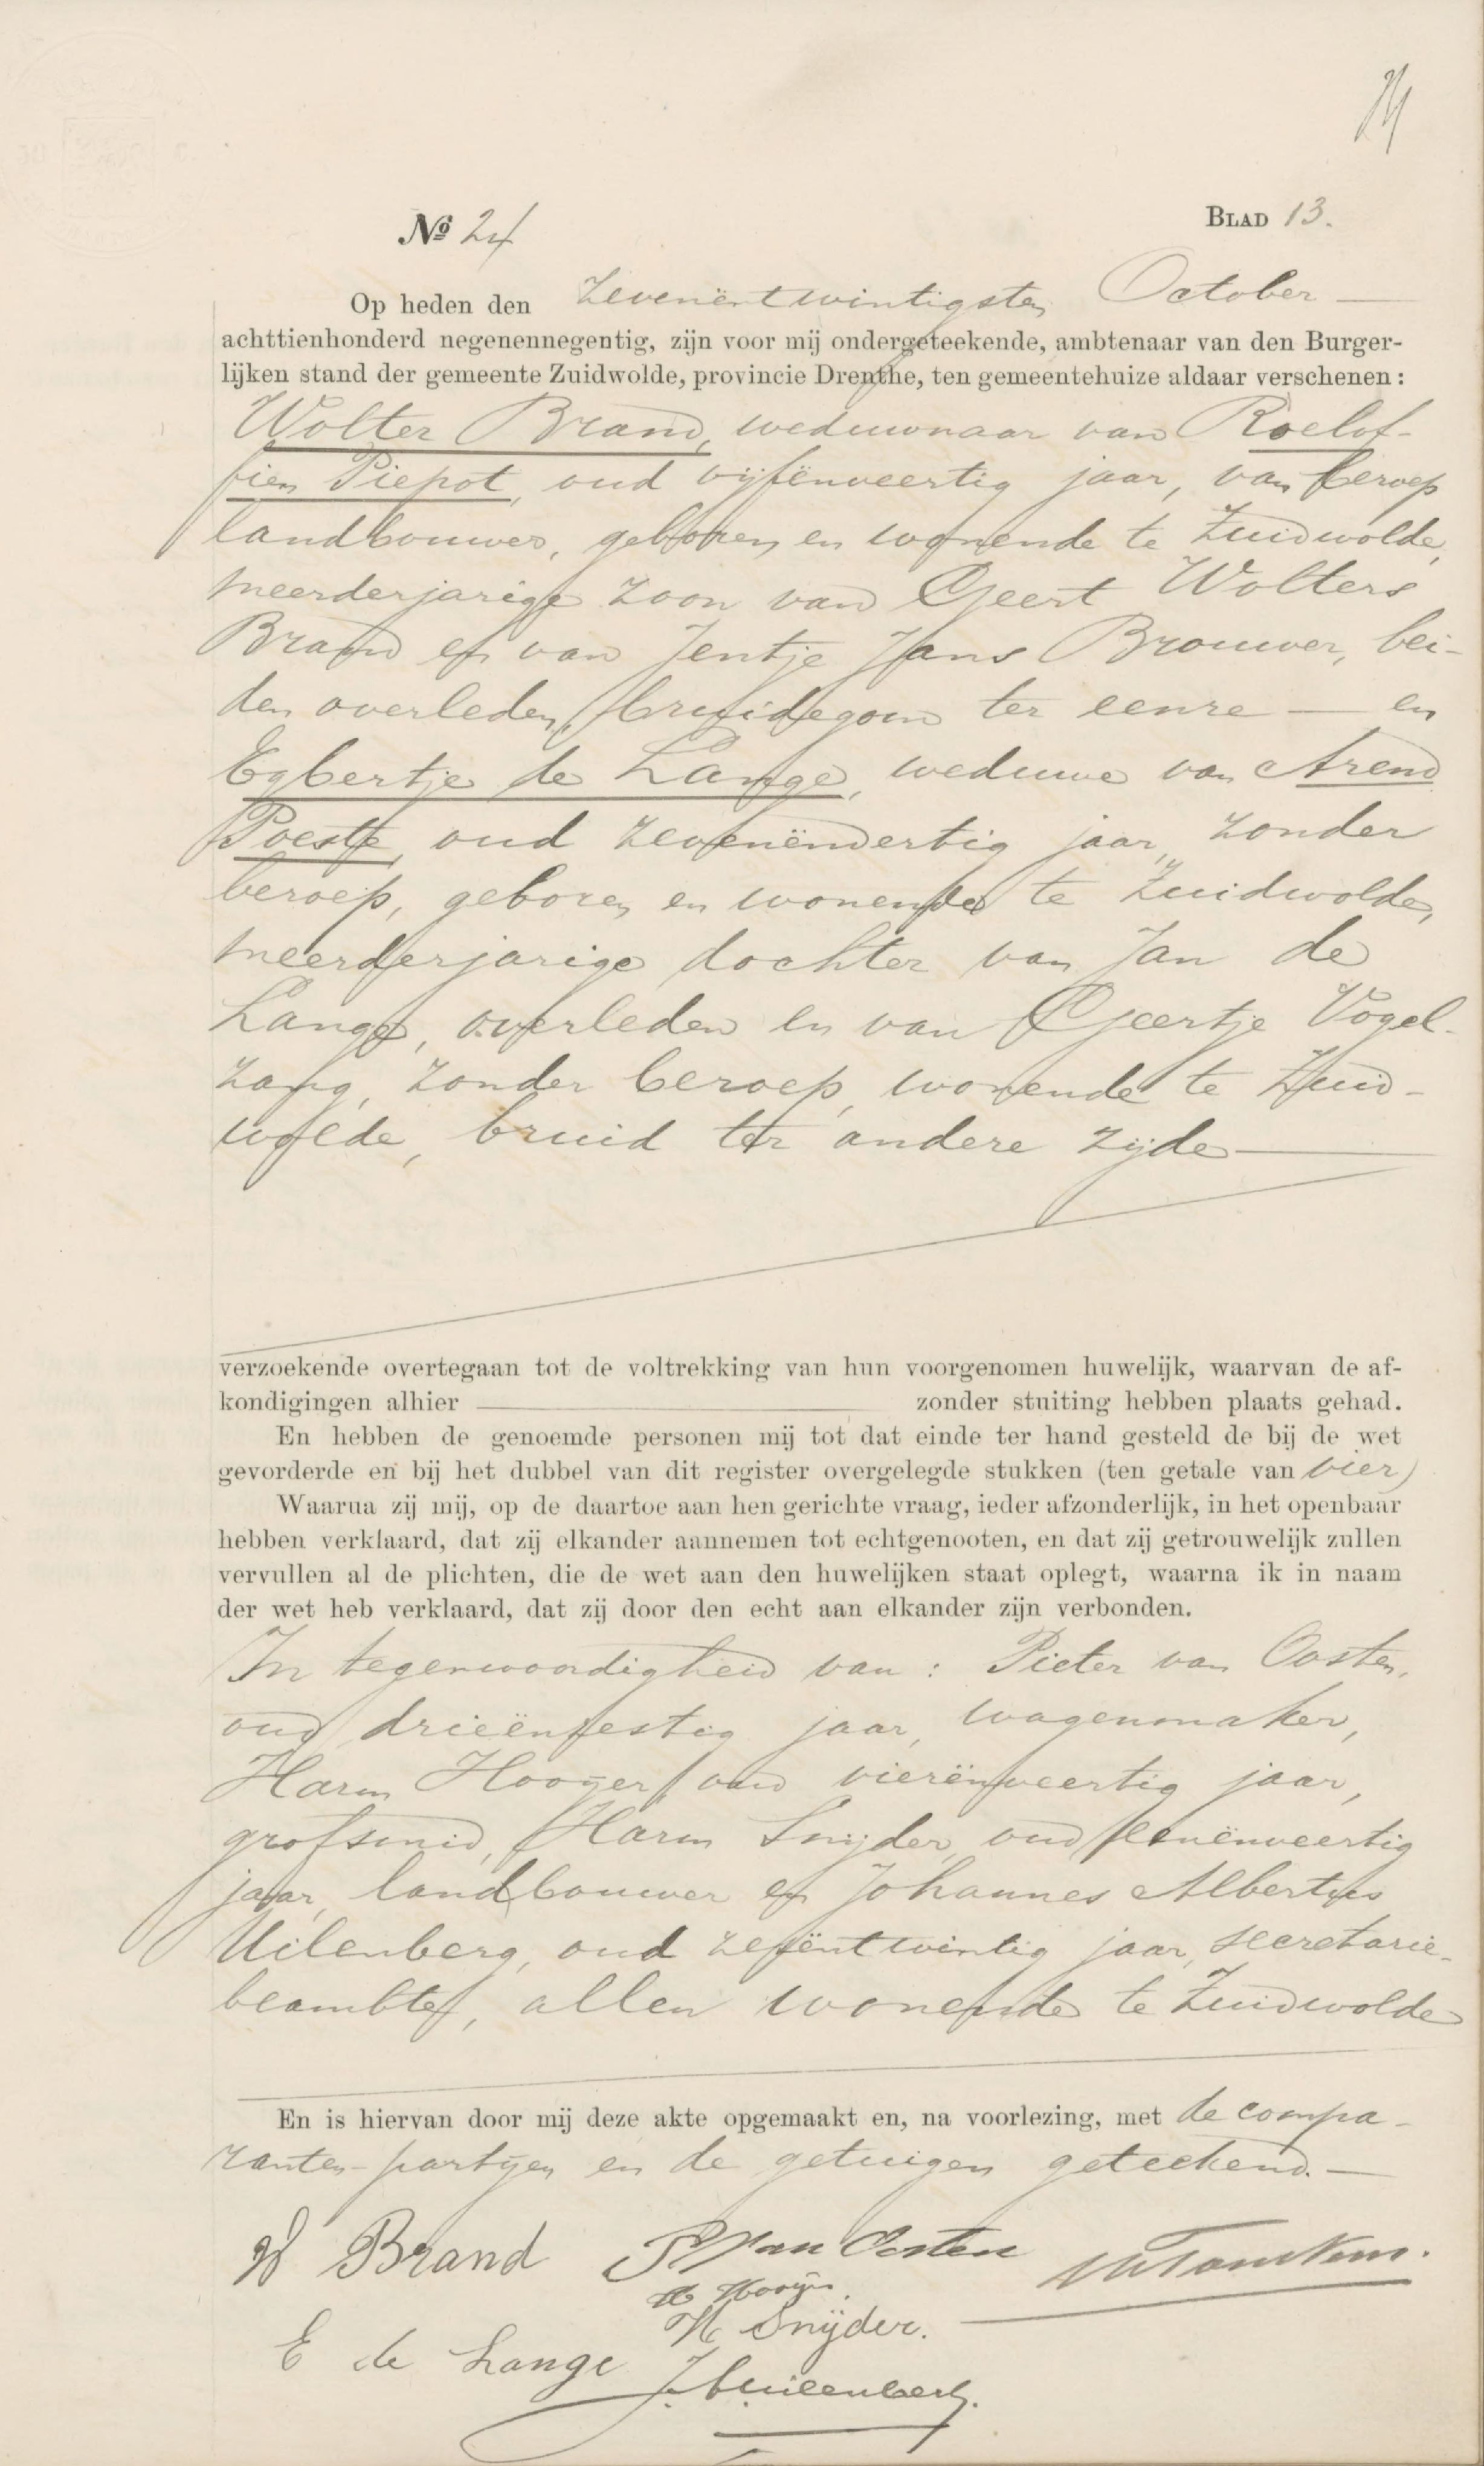 Nº 24
BLAD 13.
Op heden den zevenëntwintigsten October
achttienhonderd negenennegentig, zijn voor mij ondergeteekende, ambtenaar van den Burger-
lijken stand der gemeente Zuidwolde, provincie Drenthe, ten gemeentehuize aldaar verschenen:
Wolter Brand, weduwnaar van Roelof-
fien Piepot, oud vijfënveertig jaar, van beroep
landbouwer, geboren en wonende te Zuidwolde,
meerderjarige zoon van Geert Wolters
Brand en van Jentje Jans Brouwer, bei-
den overleden, bruidegom ter eenre — en
Egbertje de Lange, weduwe van Arend
Poeste, oud zevenëndertig jaar, zonder
beroep, geboren en wonende te Zuidwolde,
meerderjarige dochter van Jan de
Lange, overleden en van Geertje Vogel-
zang, zonder beroep, wonende te Zuid-
wolde, bruid ter andere zijde
verzoekende overtegaan tot de voltrekking van hun voorgenomen huwelijk, waarvan de af-
kondigingen alhier zonder stuiting hebben plaats gehad.
En hebben de genoemde personen mij tot dat einde ter hand gesteld de bij de wet
gevorderde en bij het dubbel van dit register overgelegde stukken (ten getale van vier)
Waarna zij mij, op de daartoe aan hen gerichte vraag, ieder afzonderlijk, in het openbaar
hebben verklaard, dat zij elkander aannemen tot echtgenooten, en dat zij getrouwelijk zullen
vervullen al de plichten, die de wet aan den huwelijken staat oplegt, waarna ik in naam
der wet heb verklaard, dat zij door den echt aan elkander zijn verbonden.
In tegenwoordigheid van: Pieter van Oosten,
oud drieënsestig jaar, wagenmaker,
Harm Hooijer, oud vierënveertig jaar,
grofsmid, Harm Snijder, oud zevenënveertig
jaar, landbouwer en Johannes Albertus
Uilenberg, oud zesëntwintig jaar, secretarie-
beambte, allen wonende te Zuidwolde
En is hiervan door mij deze akte opgemaakt en, na voorlezing, met de compa-
ranten-partijen en de getuigen geteekend.
W Brand P van Oosten
H Hooijer
H Snijder.
E de Lange
J. A. Uilenberg.